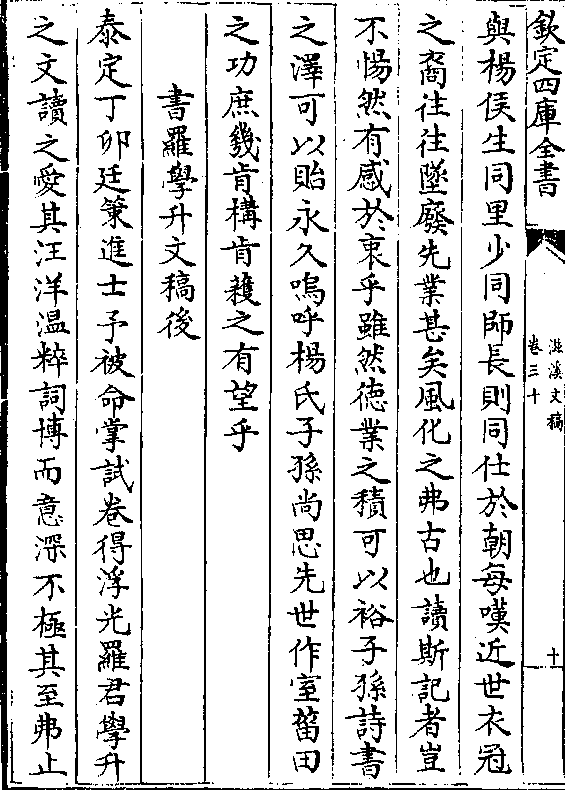 欽定四庫全書
滋溪文稿
卷三十
十
與楊侯生同里少同師長則同仕於朝每嘆近世衣冠
之裔往往墜廢先業甚矣風化之弗古也讀斯記者豈
不惕然有感於衷乎雖然徳業之積可以裕子孫詩書
之澤可以貽永久嗚呼楊氏子孫尚思先世作室菑田
之功庶幾肯構肯穫之有望乎
書羅學升文稿後
泰定丁卯廷策進士予被命掌試卷得浮光羅君學升
之文讀之愛其汪洋温粹詞博而意深不極其至弗止